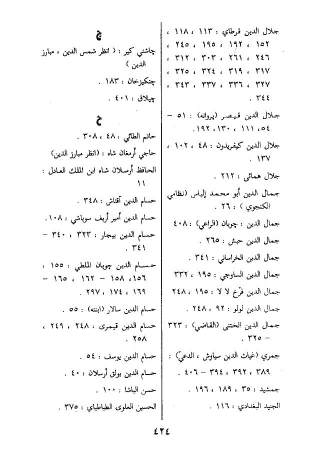 جلال الدين قرطاي : ١١٣ ، ١١٨ ،
١٥٢ ، ١٩٢ ، ١٩٥ ، ٢٤٥ ،
٢٤٦ ، ٢٦١ ، ٣٠٣ ، ٣١٢ ،
٣١٧ ، ٣١٩ ، ٣٢٤ ، ٣٢٥ ،
٣٢٧ ، ٣٣٦ ، ٣٣٧ ، ٣٤٣ ،
٣٤٤ .
جلال الدين قيصر (پروانه) : ٥١ –
٥٤ ، ١١١ ، ١٣٠ ، ١٩٢.
جلال الدين كيفريدون : ٤٨ ، ١٠٢ ،
١٣٧ .
جلال همائى : ٢١٢ .
جمال الدين أبو محمد إلياس (نظامي
الكنجوي) : ٢٦ .
جمال الدين : چوبان (الراعي) : ٤٠٨
جمال الدين حبش : ٢٦٥ .
جمال الدين الخراساني : ٣٤١ .
جمال الدين الساوجي : ١٩٥ ، ٣٣٢
جمال الدين فرّخ لا لا : ١٩٥ ، ٢٤٨
جمال الدين لولو : ٩٢ ، ٢٤٨ .
جمال الدين الختني (القاضي) : ٣٢٣
– ٣٢٥ .
جمري (غياث الدين سياوش ، الدعي) :
٣٨٩ ، ٣٩٢ ، ٣٩٤ – ٤٠٦ .
جمشيد : ٣٥ ، ١٨٩ ، ١٩٦ .
الجنيد البغدادي : ١١٦ .
چ
چاشنى كير : ( انظر شمس الدين ، مبارز
الدين )
چنكيزخان : ١٨٣ .
چيلاق : ٤٠١ .
ح
حاتم الطائى : ٤٨ ، ٣٠٨ .
حاجي أرمغان شاه : (انظر مبارز الدين)
الحافظ أرسلان شاه ابن الملك العادل :
١١
حسام الدين آقتاش : ٣٤٨ .
حسام الدين أمير أريف سوباشي : ١٠٨.
حسام الدين بيجار : ٣٢٣ ، ٣٤٠ –
٣٤١ .
حسام الدين چوبان الملطي : ١٥٥ ،
١٥٦، ١٥٨ – ١٦٢ ، ١٦٥ –
١٦٩ ، ١٧٤ ، ٢٩٧ .
حسام الدين سالار (ابنته) : ٥٥ .
حسام الدين قيمرى : ٢٤٨ ، ٢٤٩ ،
٢٥٨ .
حسام الدين يوسف : ٥٤ .
حسام الدين يولق أرسلان : ٤٠ .
حسن الباشا : ١٠٠ .
الحسين العلوى الطباطبائي : ٣٧٥ .
٤٢٤